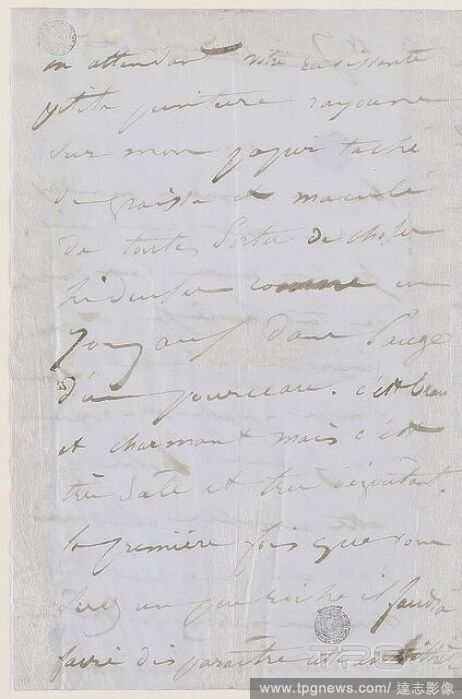 en attendant votre ravissante
petite peinture rayonne
sur mon papier taché
de graisse et maculé
de toutes sortes de choses
hideuses comme un
joyau dans l'auge
d'un pourceau. c'est beau
et charmant mais c'est
très sale et très dégoûtant.
la première fois que vous
un peu riche il faudra
faire disparaître cet
TPG
www.tpgnews.com / 達志影像